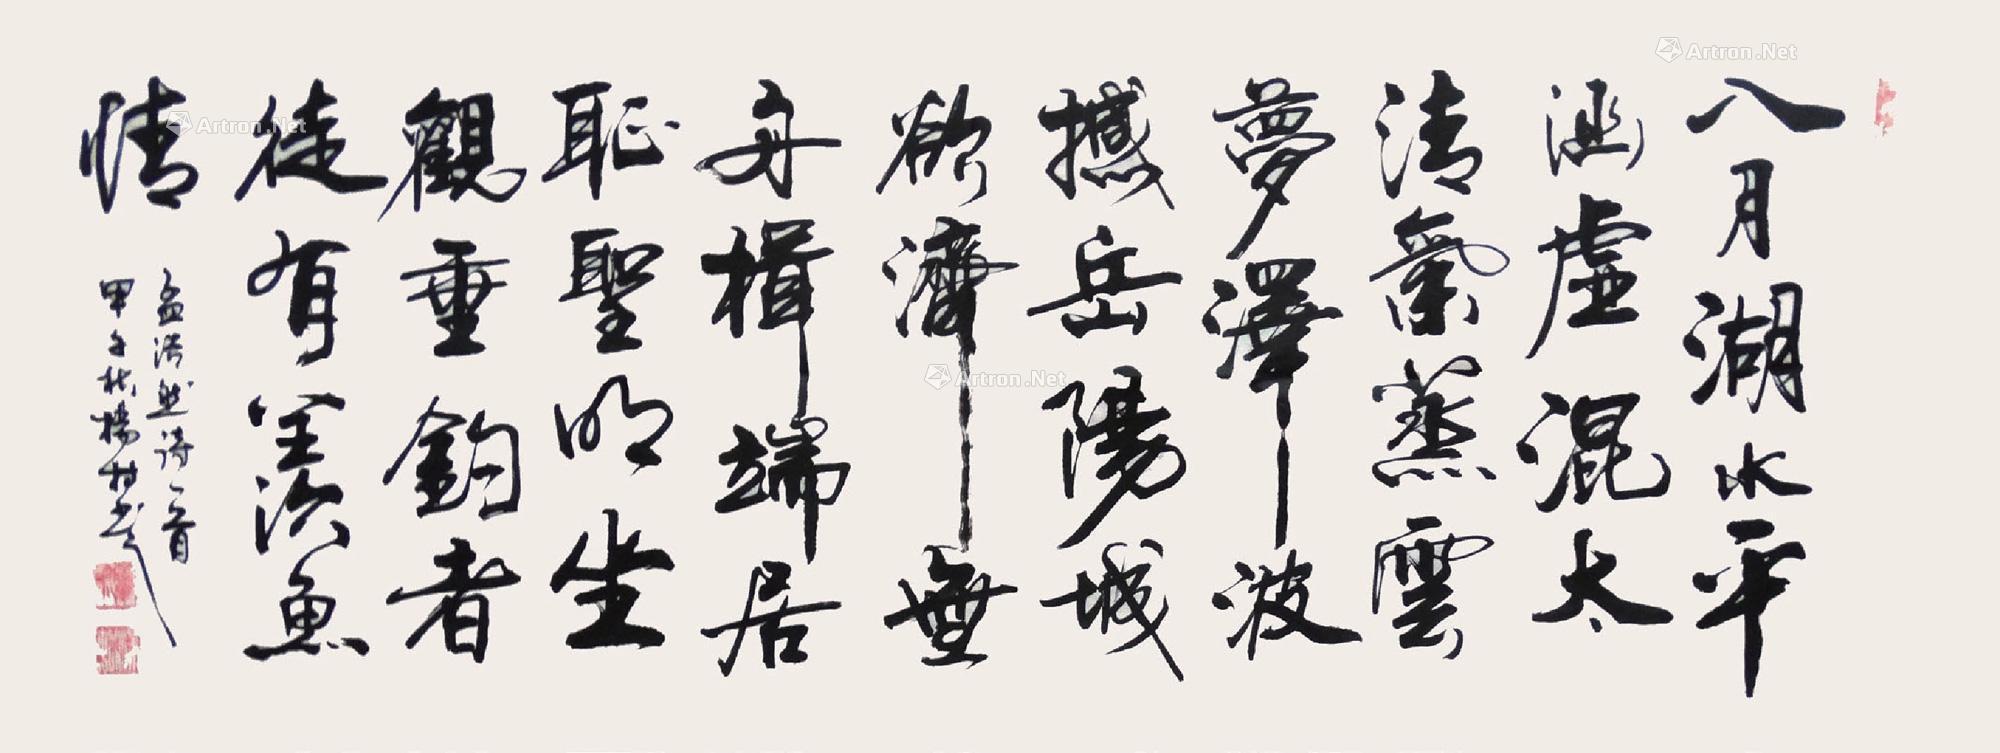 八月湖水平
涵虛混太
清氣蒸雲
夢澤波
撼岳陽城
欲濟無
舟楫端居
恥聖明坐
觀垂釣者
徒有羨魚
情
孟浩然诗一首
甲午秋楊村書
Artron.Net
Artron.Net
Artron.Net